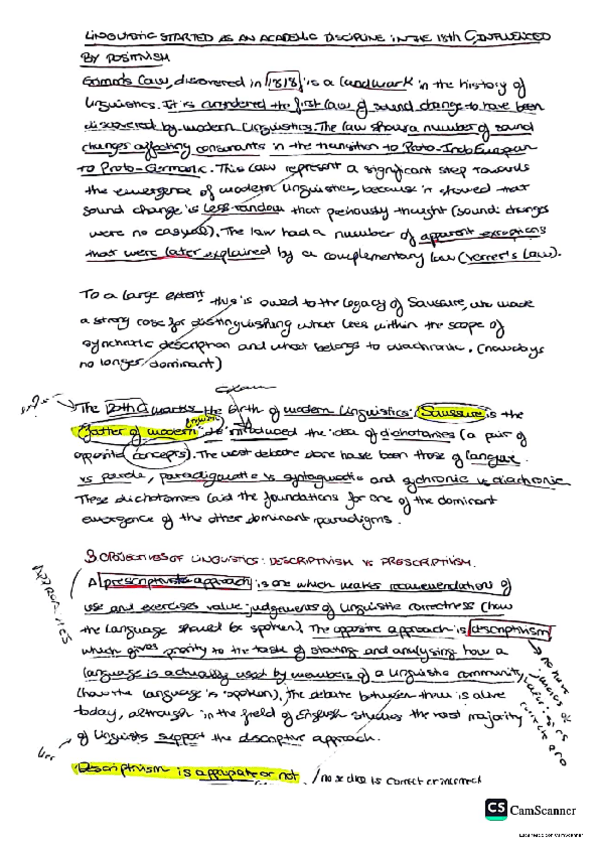 LINGUISTIC STARTED AS AN ACADEMIC DISCIPLINE IN THE 18th C, INFLUENCED
BY POSITIVISM
Grimm's Law, discovered in 1818, is a landmark in the history of
linguistics. It is considered the first law of sound change to have been
discovered by modern linguistics. The law shows a number of sound
changes affecting consonants in the transition to Proto-Indo European
to Proto-Germanic. This law represent a significant step towards
the emergence of modern linguistics, because it showed that
sound change is less random that previously thought (sound changes
were no casual). The law had a number of apparent exceptions
that were later explained by a complementary law (Verner's Law).
To a large extent, this is owed to the legacy of Saussure, who made
a strong case for distinguishing what lies within the scope of
synchronic description and what belongs to diachronic. (nowdays
no longer dominant)
Exam
The 20th C marks the birth of modern linguistics. Saussure is the
father of modern linguistics, he introduced the idea of dichotomies (a pair of
opposite concepts). The most debate done have been those of langue
vs parole, paradigmatic vs syntagmatic and sychronic vs diachronic
These dichotomies laid the foundations for one of the dominant
emergence of the other dominant paradigms.
3 OBJECTIVES OF LINGUISTICS: DESCRIPTIVISM VS PRESCRIPTIVISM.
APPROACHES
A prescriptivist approach is one which makes recommendation of
use and exercises value judgements of linguistic correctness (how
the language should be spoken). The opposite approach is descriptivism
which gives priority to the task of stating and analysing how a
language is actually used by members of a linguistic community
(how the language is spoken). The debate between them is alive
today, although in the field of English studies the vast majority
of linguists support the descriptive approach.
Descriptivism is appropiate or not / no se dice is correct or incorrect
CS CamScanner